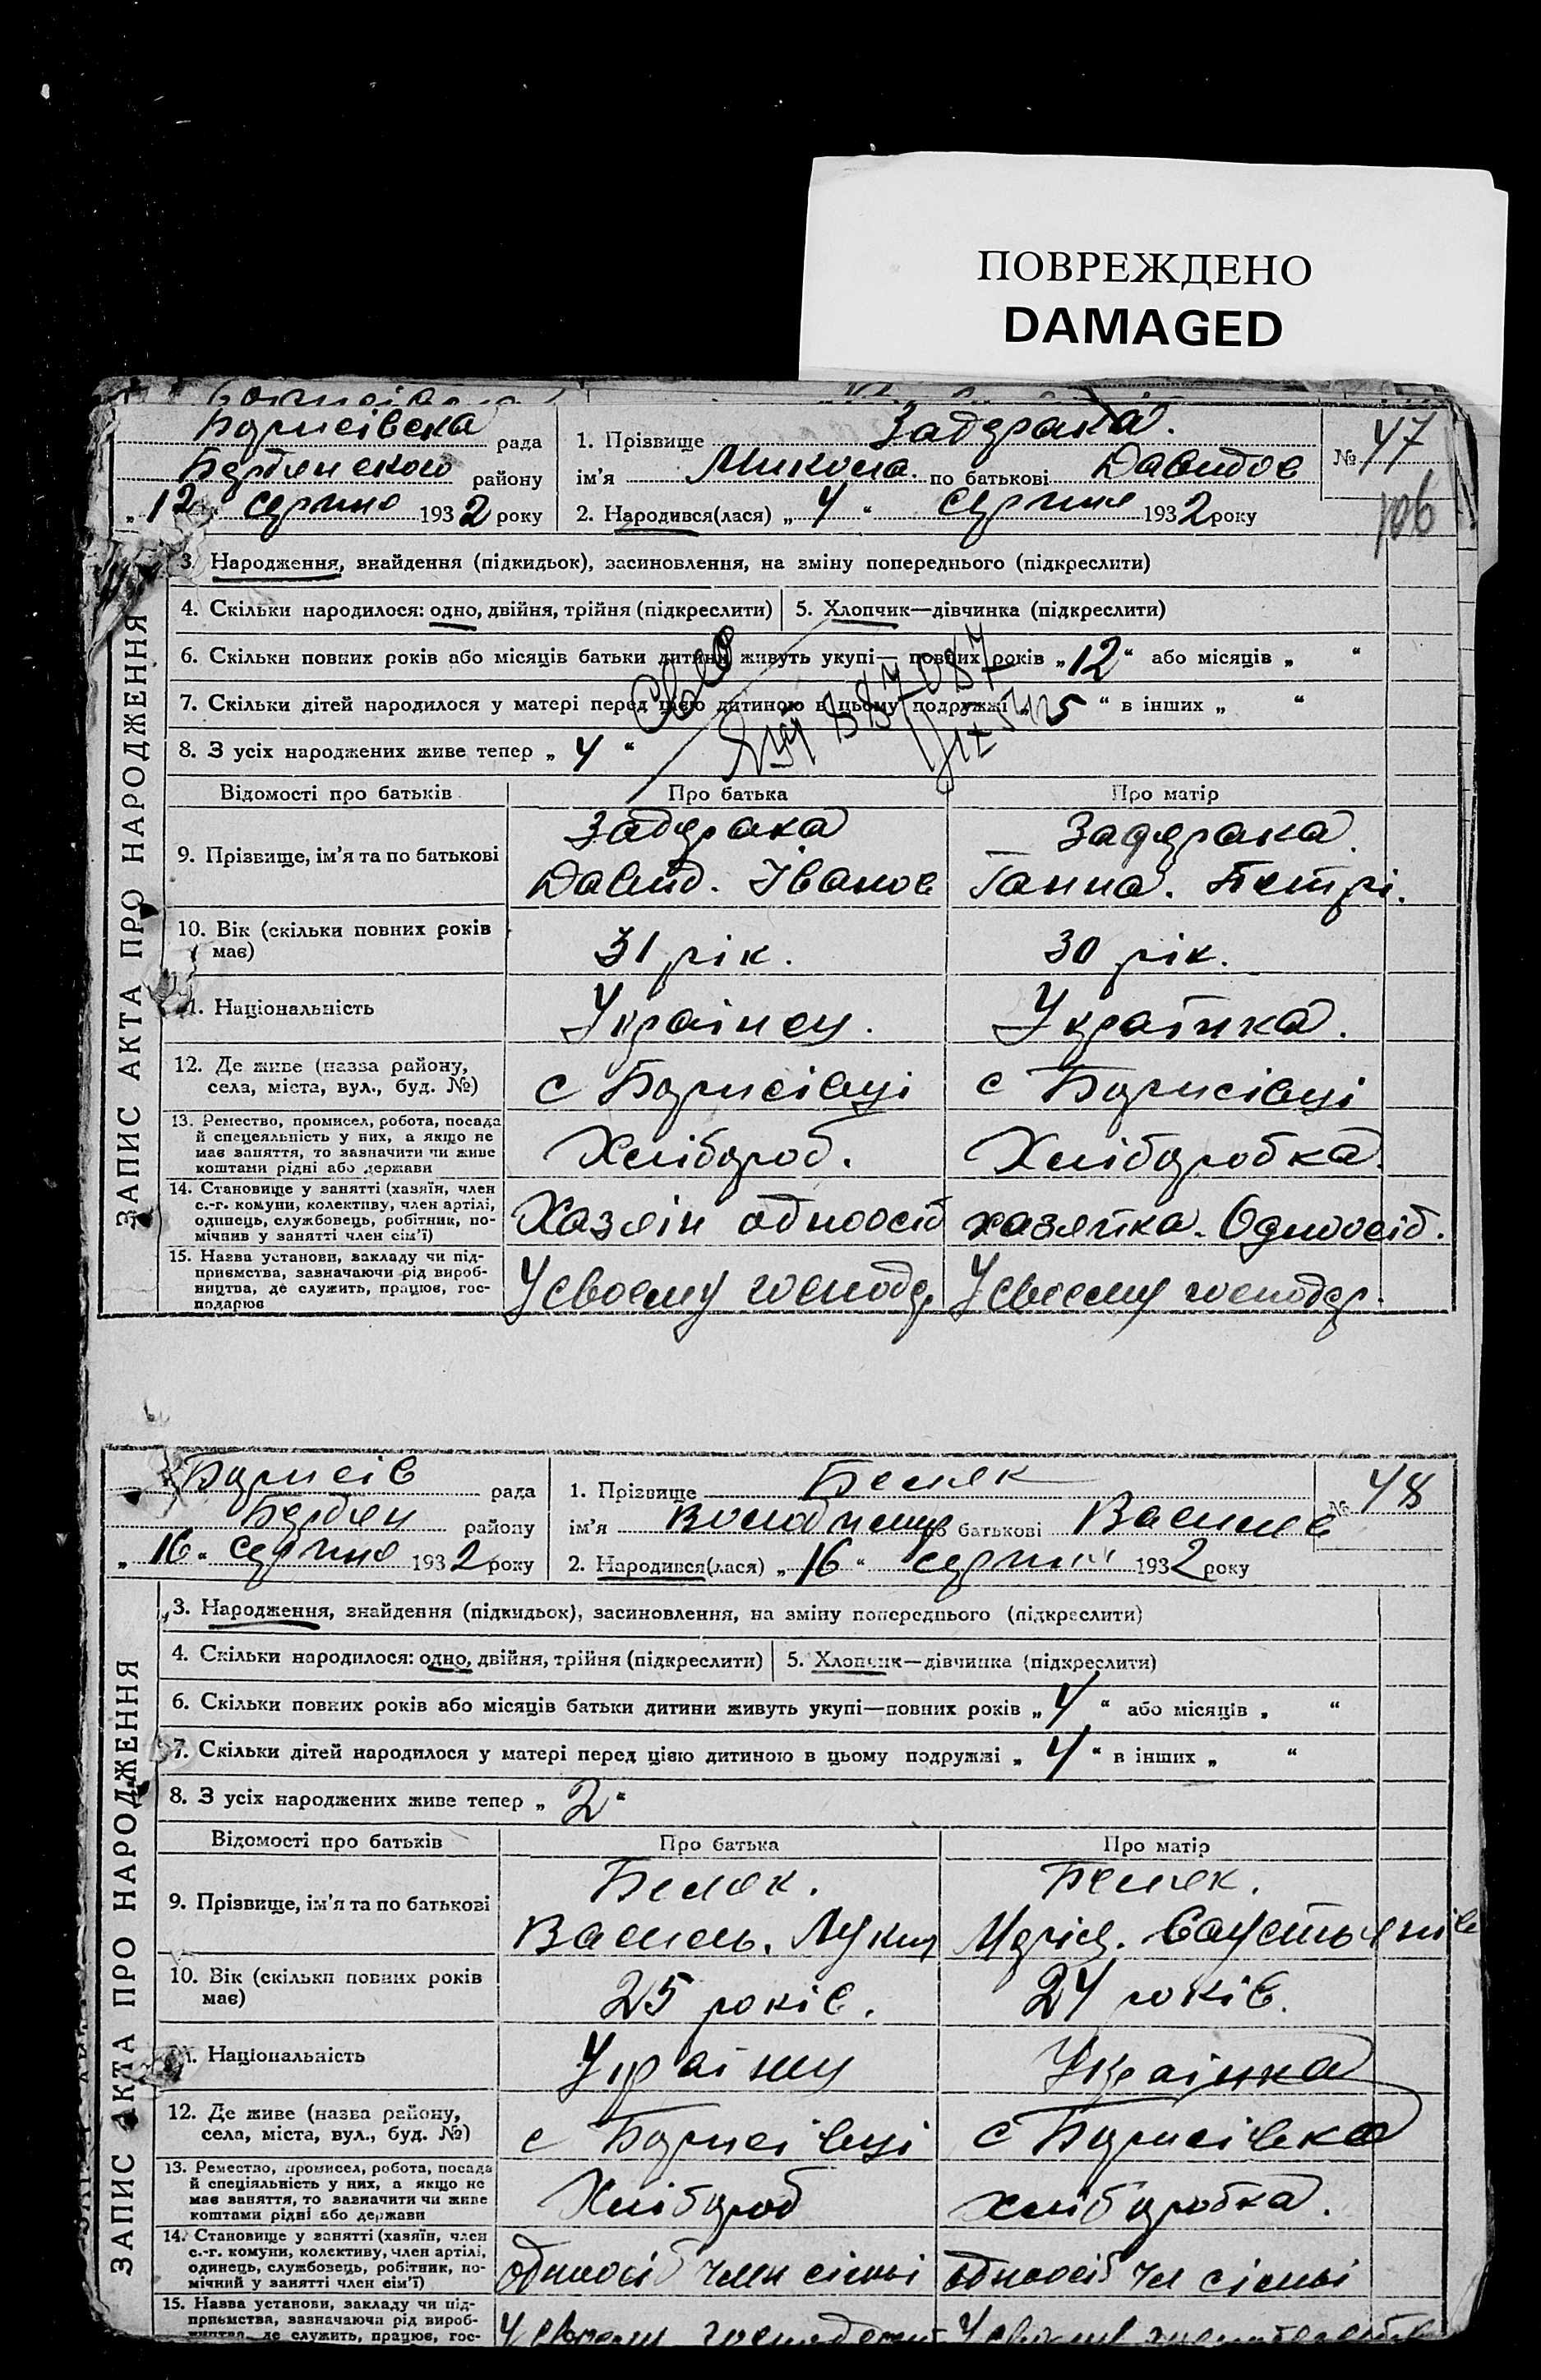 ПОВРЕЖДЕНО
DAMAGED
Борисівська рада
Бердянского району
„12“ серпня 1932 року
1. Прізвище Задерака.
ім’я Микола. по батькові Давидов
2. Народився(лася) „4“ серпня 1932 року
№ 47
106
ЗАПИС АКТА ПРО НАРОДЖЕННЯ
3. Народження, знайдення (підкидьок), засиновлення, на зміну попереднього (підкреслити)
4. Скільки народилося: одно, двійня, трійня (підкреслити) 5. Хлопчик—дівчинка (підкреслити)
6. Скільки повних років або місяців батьки дитини живуть укупі— повних років „12“ або місяців „ “
7. Скільки дітей народилося у матері перед цією дитиною в цьому подружжі „5“ в інших „ “
8. З усіх народжених живе тепер „4“
Відомості про батьків Про батька Про матір
9. Прізвище, ім’я та по батькові
Задерака
Давид. Іванов
Задерака.
Ганна. Петрі.
10. Вік (скільки повних років має)
31 рік.
30 рік.
11. Національність
Українец.
Українка.
12. Де живе (назва району,
села, міста, вул., буд. №)
с Борисівці
с Борисівці
13. Ремество, промисел, робота, посада
й спецеяльність у них, а якщо не
має заняття, то зазначити чи живе
коштами рідні або держави
Хлібороб.
Хліборобка.
14. Становище у занятті (хазяїн, член
с.-г. комуни, колективу, член артілі,
одинець, службовець, робітник, по-
мічник у занятті член сім’ї)
Хазяїн одноосіб
хазяйка. Одноосіб.
15. Назва установи, закладу чи під-
приємства, зазначаючи рід вироб-
ництва, де служить, працює, гос-
подарює
У своему господ
У своему господар.
Борисів рада
Бердян району
„16“ серпня 1932 року
1. Прізвище Беляк
ім’я Володимир по батькові Василів
2. Народився(лася) „16“ серпня 1932 року
№ 48
ЗАПИС АКТА ПРО НАРОДЖЕННЯ
3. Народження, знайдення (підкидьок), засиновлення, на зміну попереднього (підкреслити)
4. Скільки народилося: одно, двійня, трійня (підкреслити) 5. Хлопчик—дівчинка (підкреслити)
6. Скільки повних років або місяців батьки дитини живуть укупі—повних років „4“ або місяців „ “
7. Скільки дітей народилося у матері перед цією дитиною в цьому подружжі „4“ в інших „ “
8. З усіх народжених живе тепер „2“
Відомості про батьків Про батька Про матір
9. Прізвище, ім’я та по батькові
Беляк.
Василь. Лукич
Беляк.
Марія.
10. Вік (скільки повних років
має)
25 років.
24 років.
11. Національність
Українец
Українка
12. Де живе (назва району,
села, міста, вул., буд. №)
с Борисівці
с Борисівка
13. Ремество, промисел, робота, посада
й спеціяльність у них, а якщо не
має заняття, то зазначити чи живе
коштами рідні або держави
Хлібороб
хліборобка.
14. Становище у занятті (хазяїн, член
с.-г. комуни, колективу, член артілі,
одинець, службовець, робітник, по-
мічний у занятті член сім’ї)
одноосіб член сімьі
одноосіб чл сімьі
15. Назва установи, закладу чи під-
приємства, зазначаючи рід вироб-
ництва, де служить, працює, гос-